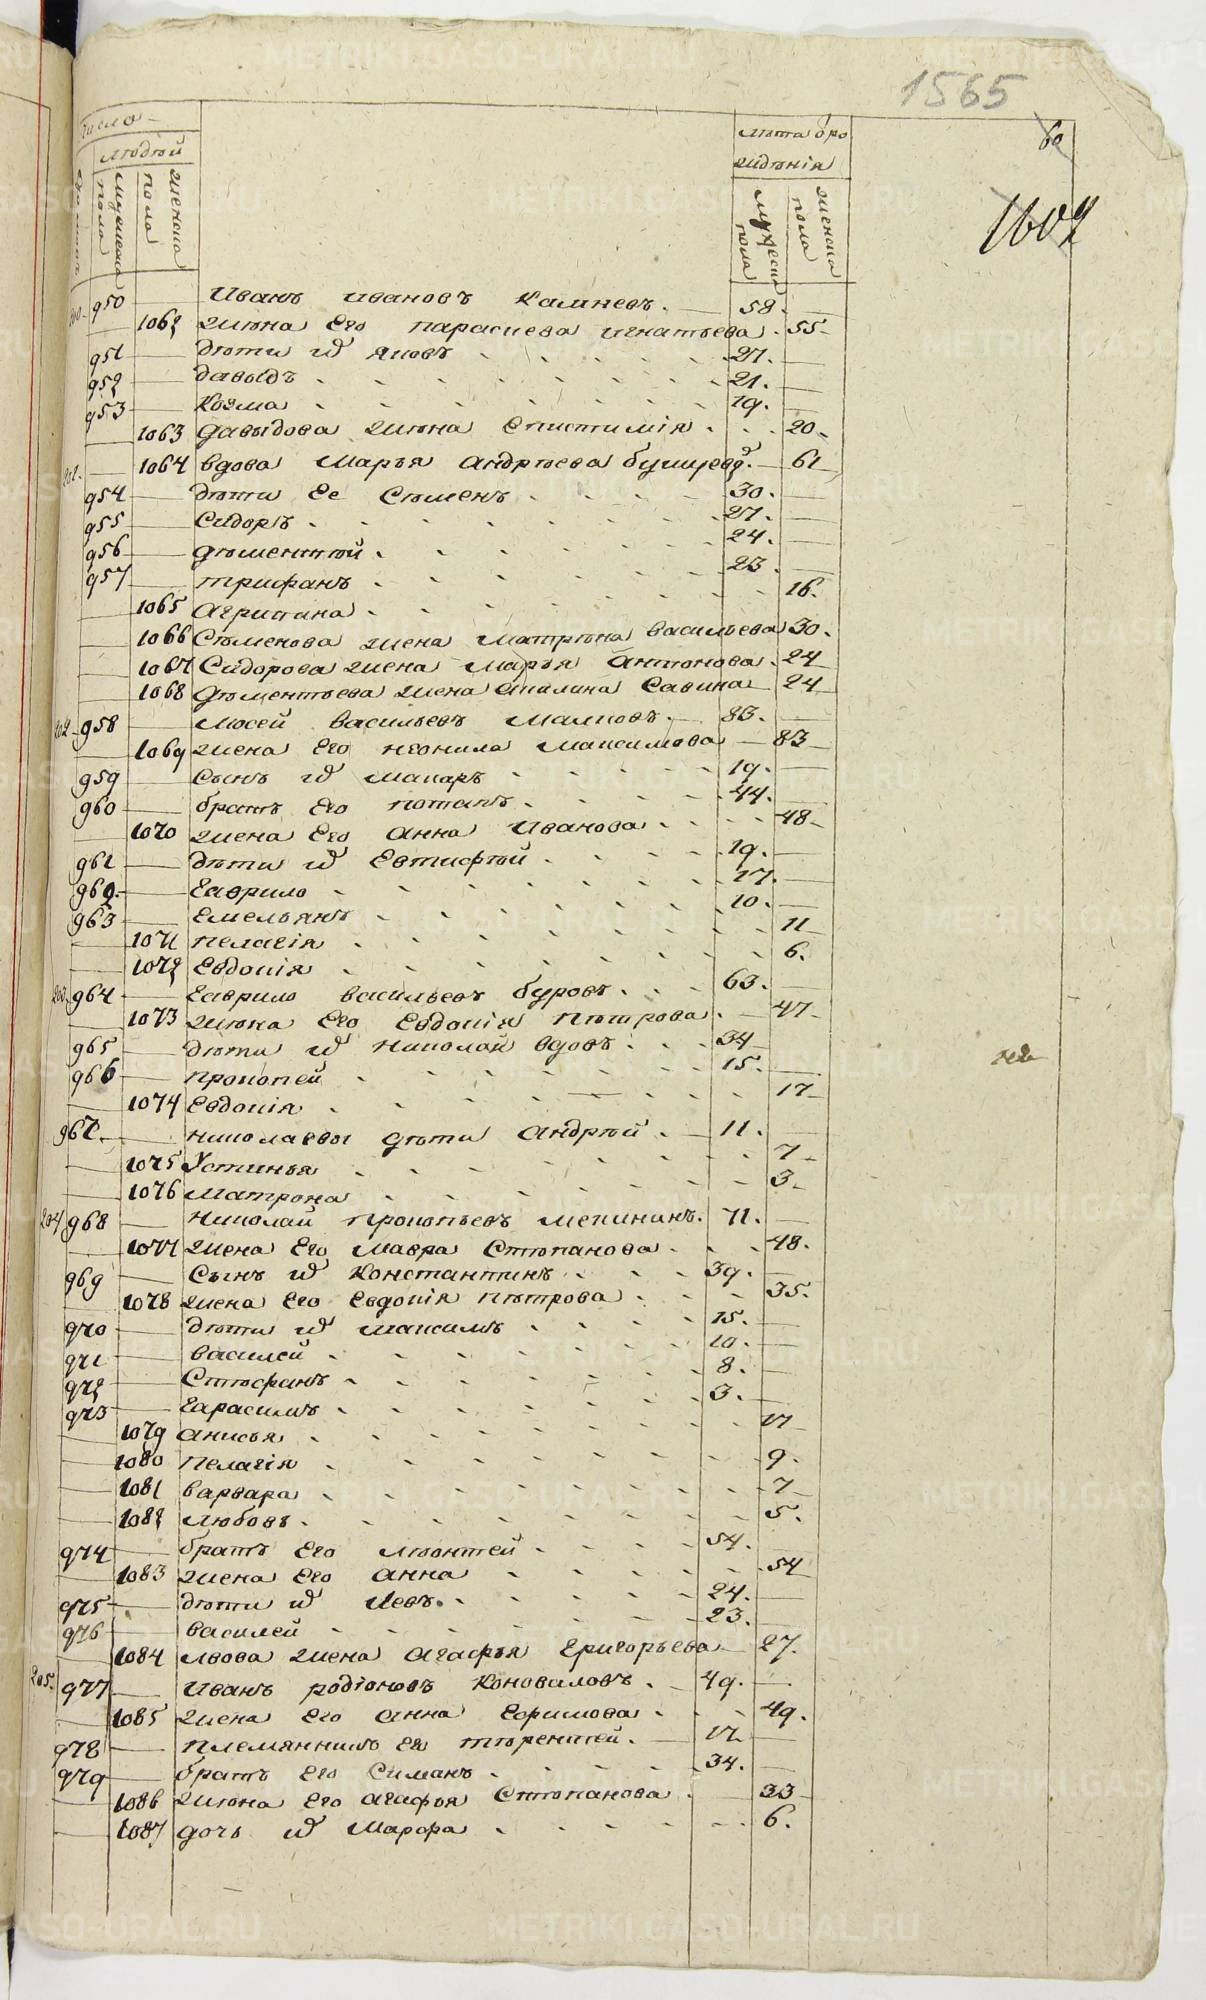 1565
60
1602
Число
людей
мужеска пола
женска пола
лета от рождения
мужеска пола
женска пола
200. 950 Иванъ Ивановъ Камневъ. 58.
1062 жена Его парасковa игнатьева. 55
951 дети ихъ яковъ 27.
952 давыдъ 21.
953 козма 19.
1063 давыдова жена Епистимія 20
201. 1064 вдова Марья андреева бушуева. 61
954 дети Ее Семенъ 30.
955 Сидоръ 27.
956 дементей 24.
957 трифанъ 23.
1065 агрипина 16.
1066 Семенова жена матрена васильева 30.
1067 Сидорова жена марья антонова 24
1068 дементьева жена акилина Савина 24
202. 958 мосей васильевъ малковъ. 83.
1069 жена Его неонила максимова 83
959 Сынъ ихъ макаръ 19.
960 братъ Его потапъ 44.
1070 жена Его анна Иванова 48
961 дети ихъ Евтифей 19.
962. Гаврило 17.
963 Емельянъ 10.
1071 пелагія 11
1072 Евдокія 6.
203. 964 Гаврило васильевъ буровъ 63.
1073 жена Его Евдокія петрова 47
965 дети ихъ николай вдовъ 34
966 прокопей 15.
1074 Евдокія 17
967. николаевы дети андрей 11.
1075 Устинья 7
1076 матрона 3.
204 968 николай прокопьевъ мекининъ. 71.
1077 жена Его мавра Степанова 48.
969 Сынъ ихъ константинъ 39.
1078 жена Его Евдокія петрова 35.
970 дети ихъ максимъ 15.
971 василей 10.
972 Стефанъ 8.
973 Гарасимъ 3.
1079 анисья 17
1080 пелагія 9.
1081 варвара 7
1082 любовь. 5.
974 братъ Его леонтей 54.
1083 жена Его анна 54
975 дети ихъ левъ. 24.
976 василей 23.
1084 львова жена агафья Григорьева 27.
205. 977 Иванъ родіоновъ коноваловъ 49.
1085 жена Его анна Ефимова 49.
978 племянникъ Ево терентей. 17
979 братъ Его Симанъ 34.
1086 жена Его агафья Степанова 33
1087 дочь ихъ Марфа 6.
METRIKI.GASO-URAL.RU